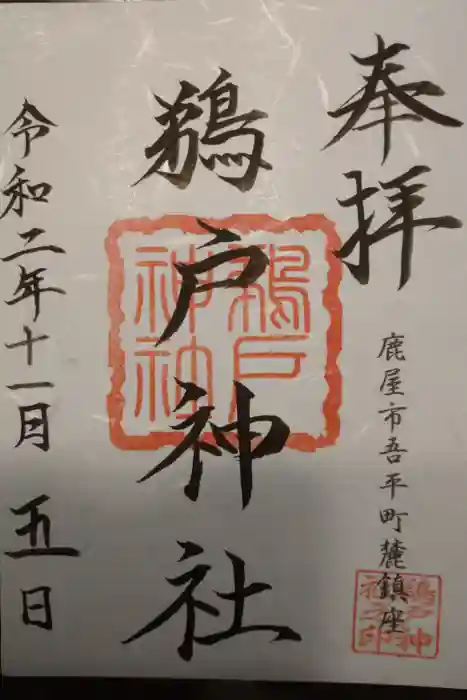 奉拝
鹿屋市吾平町麓鎮座
鵜戸神社
鵜戸神社
鵜戸神社之印
令和二年十一月五日